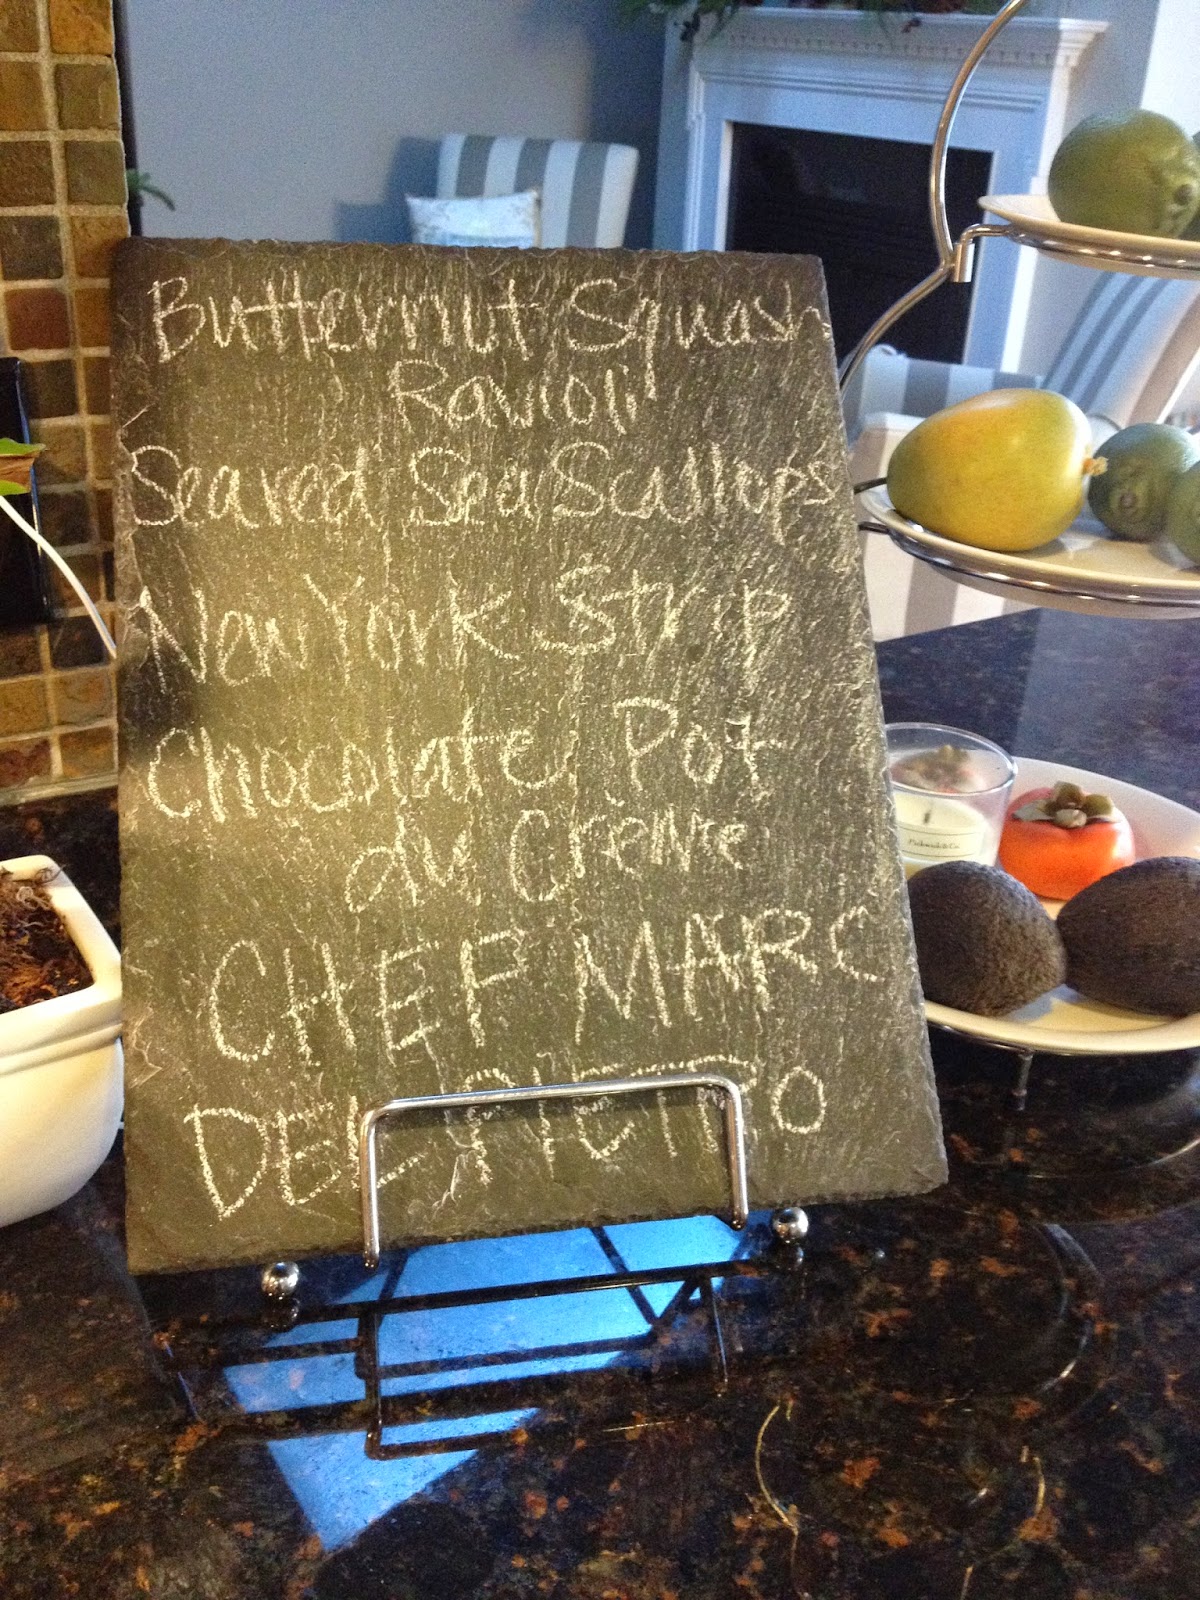 Butternut Squash
Ravioli
Seared Sea Scallops
New York Strip
Chocolate Pot
du Crème
CHEF MARC
DEL PIETRO